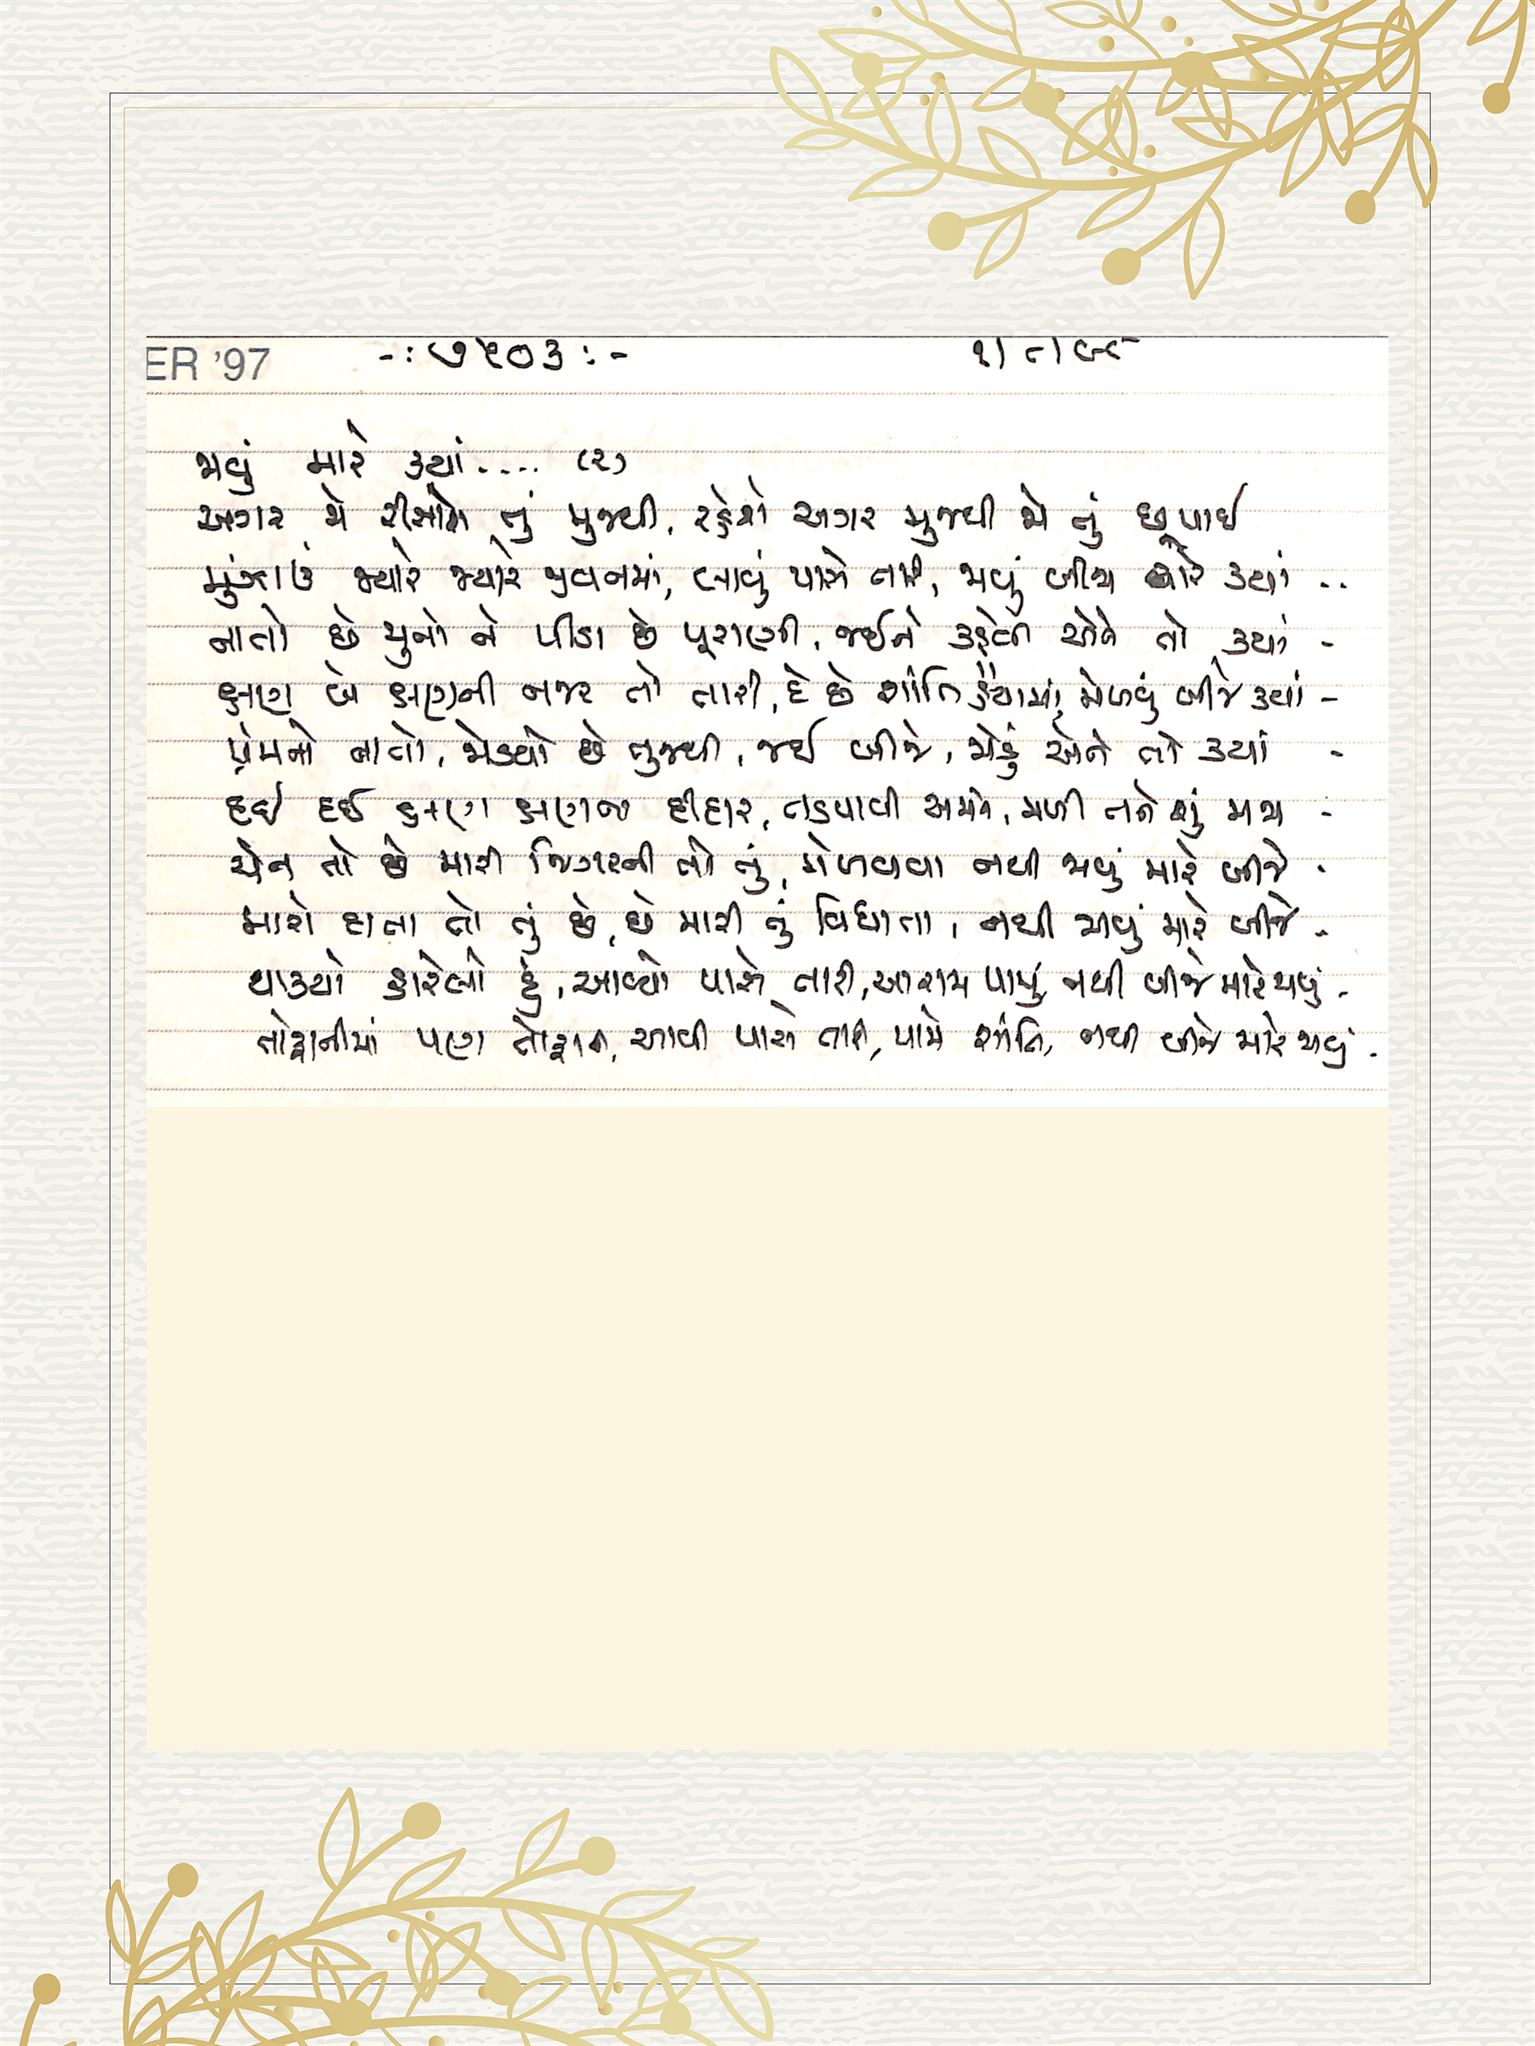 ER '97 -:૭૫૦૩:- ૧/૮/૯૮
જાવું મારે ક્યાં.... (૨)
અગર જો રીસાઈશ તું મુજથી, રહેશે અગર મુજથી જો તું છૂપાઈ
મુંઝાઉં જ્યારે જ્યારે જીવનમાં, આવું પાસે તારી, જાવું બીજા દ્વારે ક્યાં ..
નાતો છે જુનો ને પીડા છે પૂરાણી, જઈને કહેવી એને તો ક્યાં -
ક્ષણ બે ક્ષણની નજર તો તારી, દે છે શાંતિ હૈયામાં, મેળવું બીજે ક્યાં -
પ્રેમનો નાતો, જોડયો છે તુજથી, જઈ બીજે, જોડું એને તો ક્યાં -
દઈ દઈ ક્ષણ ક્ષણના દીદાર, તડપાવી અમને, મળી તને શું મજા -
ચેન તો છે મારા જિગરની તો તું, મેળવવા નથી જાવું મારે બીજે -
મારો દાતા તો તું છે, છે મારી તું વિધાતા, નથી જાવું મારે બીજે -
થાક્યો હારેલો હું, આવ્યો પાસે તારી, આરામ પામું, નથી બીજે મારે જાવું -
તોફાનીમાં પણ તોફાન, આવી પાસે તારી, પામે શાંતિ, નથી બીજે મારે જાવું -